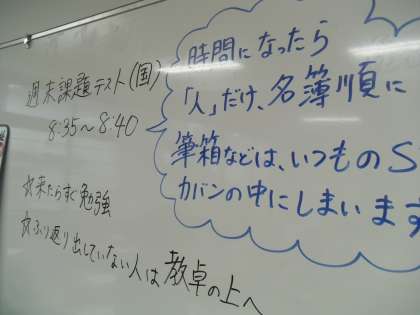 週末課題テスト(国)
8:35〜8:40
☆来たらすぐ勉強
☆ふり返り出していない人は教卓の上へ
時間になったら
「人」だけ、名簿順に
筆箱などは、いつものS
カバンの中にしまいます